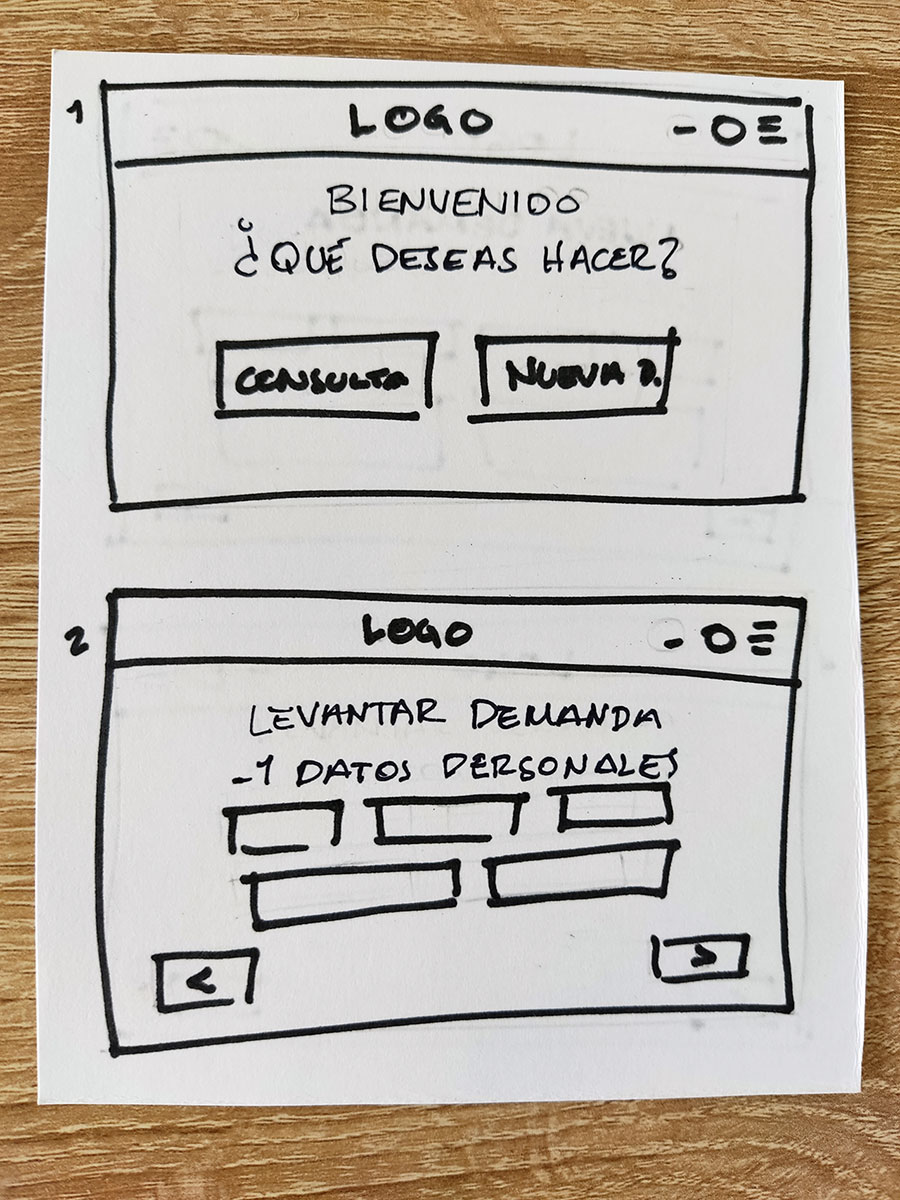 1
LOGO
BIENVENIDO
¿QUÉ DESEAS HACER?
CONSULTA
NUEVA D.
2
LOGO
LEVANTAR DEMANDA
-1 DATOS PERSONALES
<
>